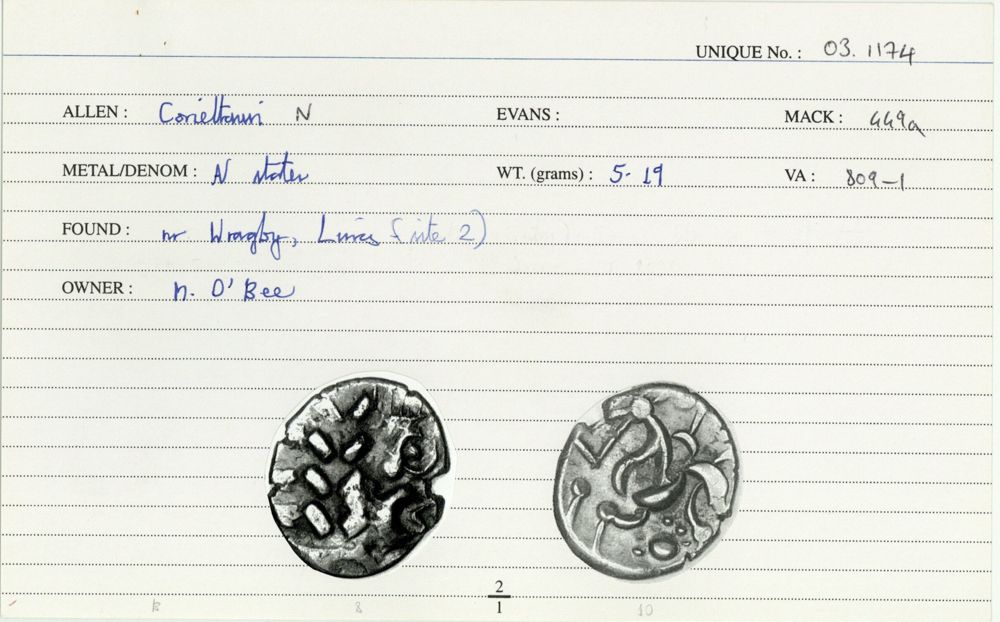 UNIQUE No. : 03. 1174
ALLEN : Corieltauvi N EVANS : MACK : 449a
METAL/DENOM : N stater WT. (grams) : 5. 19 VA : 809-1
FOUND : nr Wragby, Lincs (site 2)
OWNER : N. O' Bee
2
1
8 10